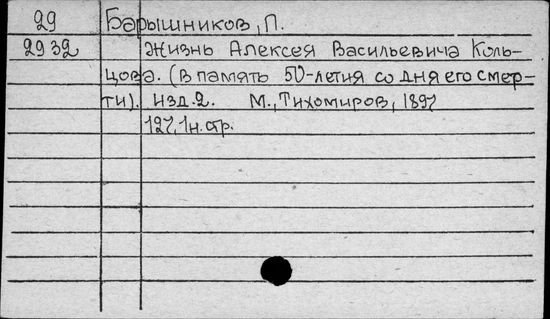 29 Барышников, П.
2932 Жизнь Алексея Васильевича Коль-
цова. (В память 50-летия со дня его смер-
ти). изд. 2. М., Тихомиров, 1897
127, 1н. стр.